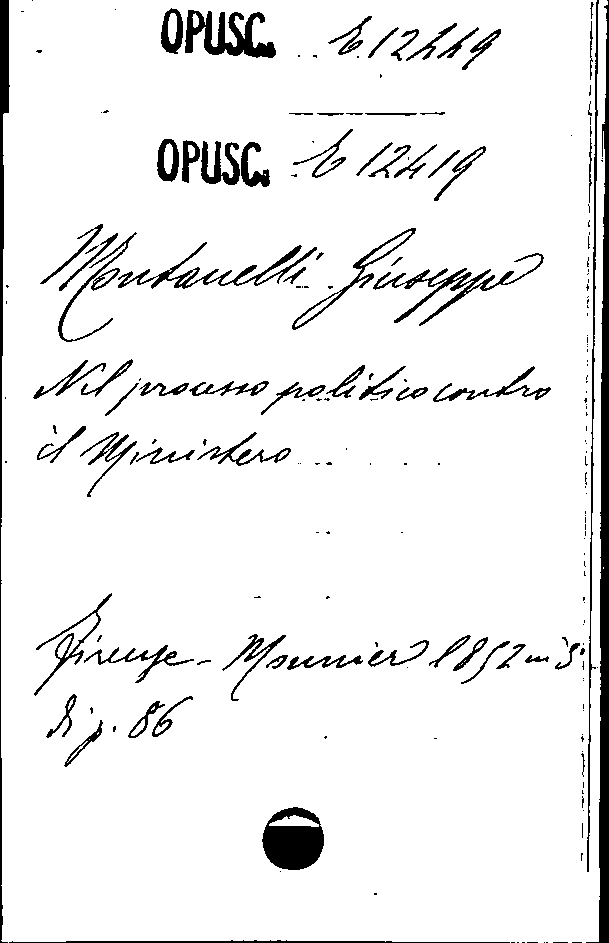 OPUSC. E 12449
OPUSC. E 12419
Montanelli Giuseppe
Nel processo politico contro
il Ministero
Firenze - Mounier 1852 in 8°
di p. 86